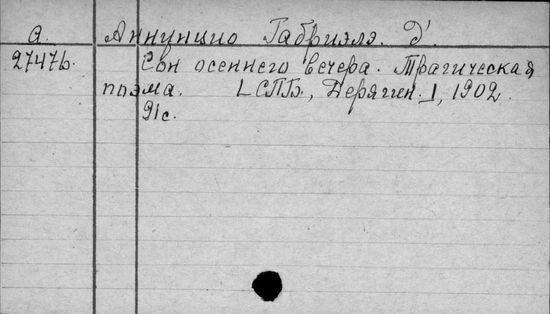 а. Аннунцио Габриэлэ. Д'.
27476. Сон осеннего вечера. Трагическая
поэма. [СПБ., Дерягин.], 1902.
91с.